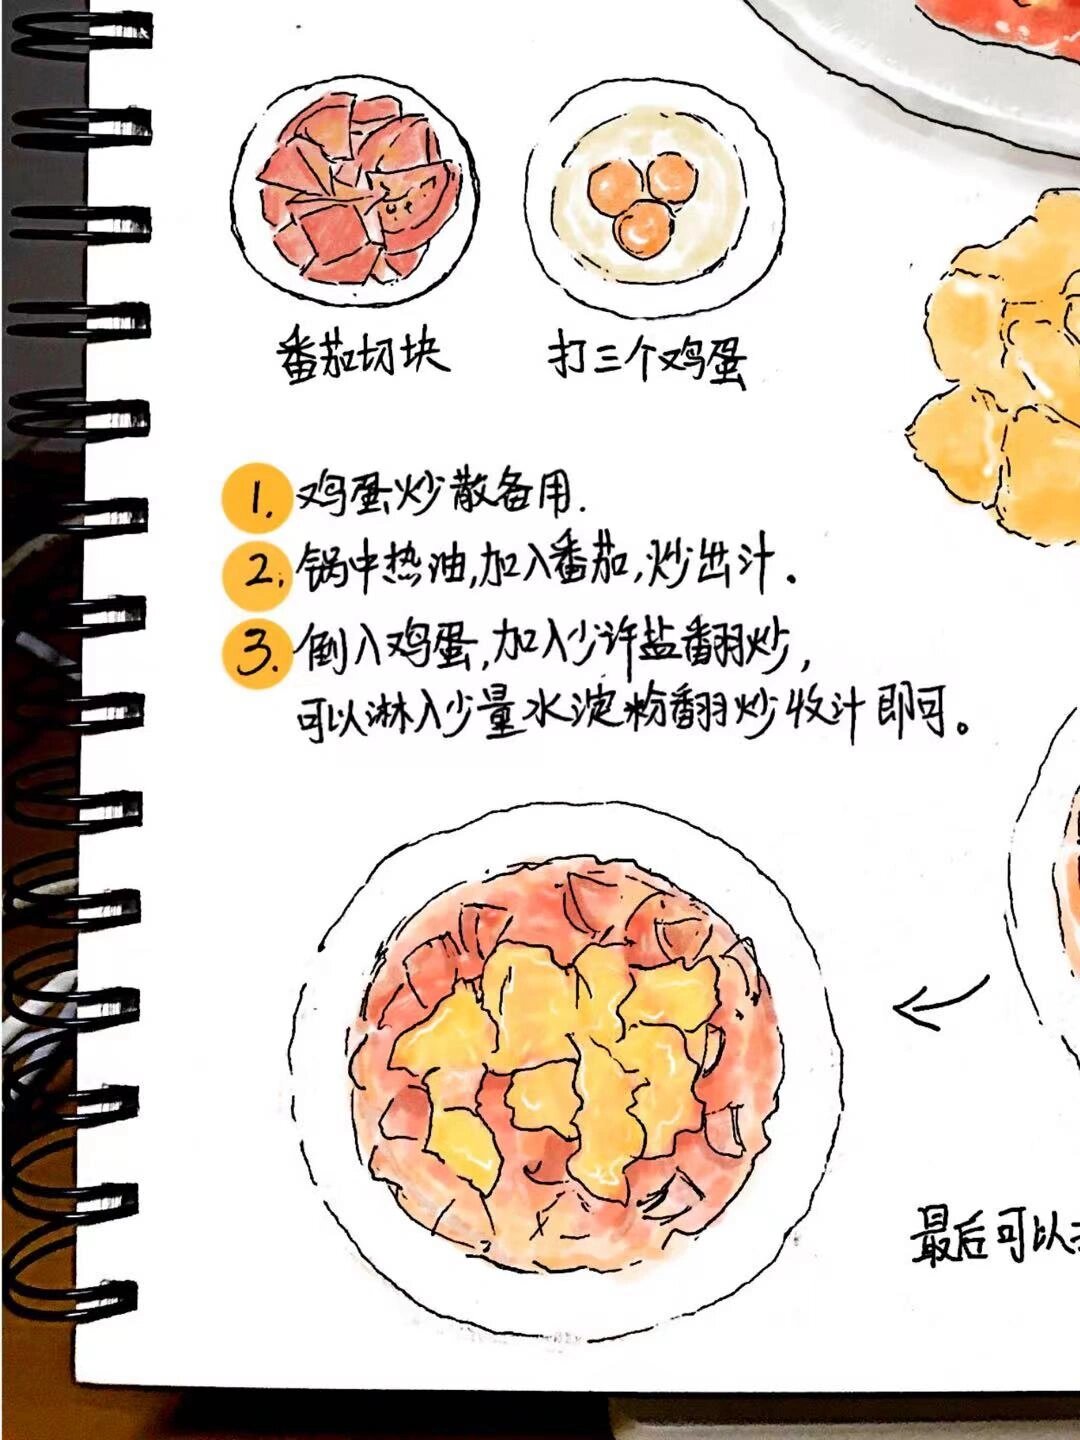 番茄切块
打三个鸡蛋
1. 鸡蛋炒散备用.
2. 锅中热油,加入番茄,炒出汁.
3. 倒入鸡蛋,加入少许盐翻炒,
可以淋入少量水淀粉翻炒收汁即可。
最后可以